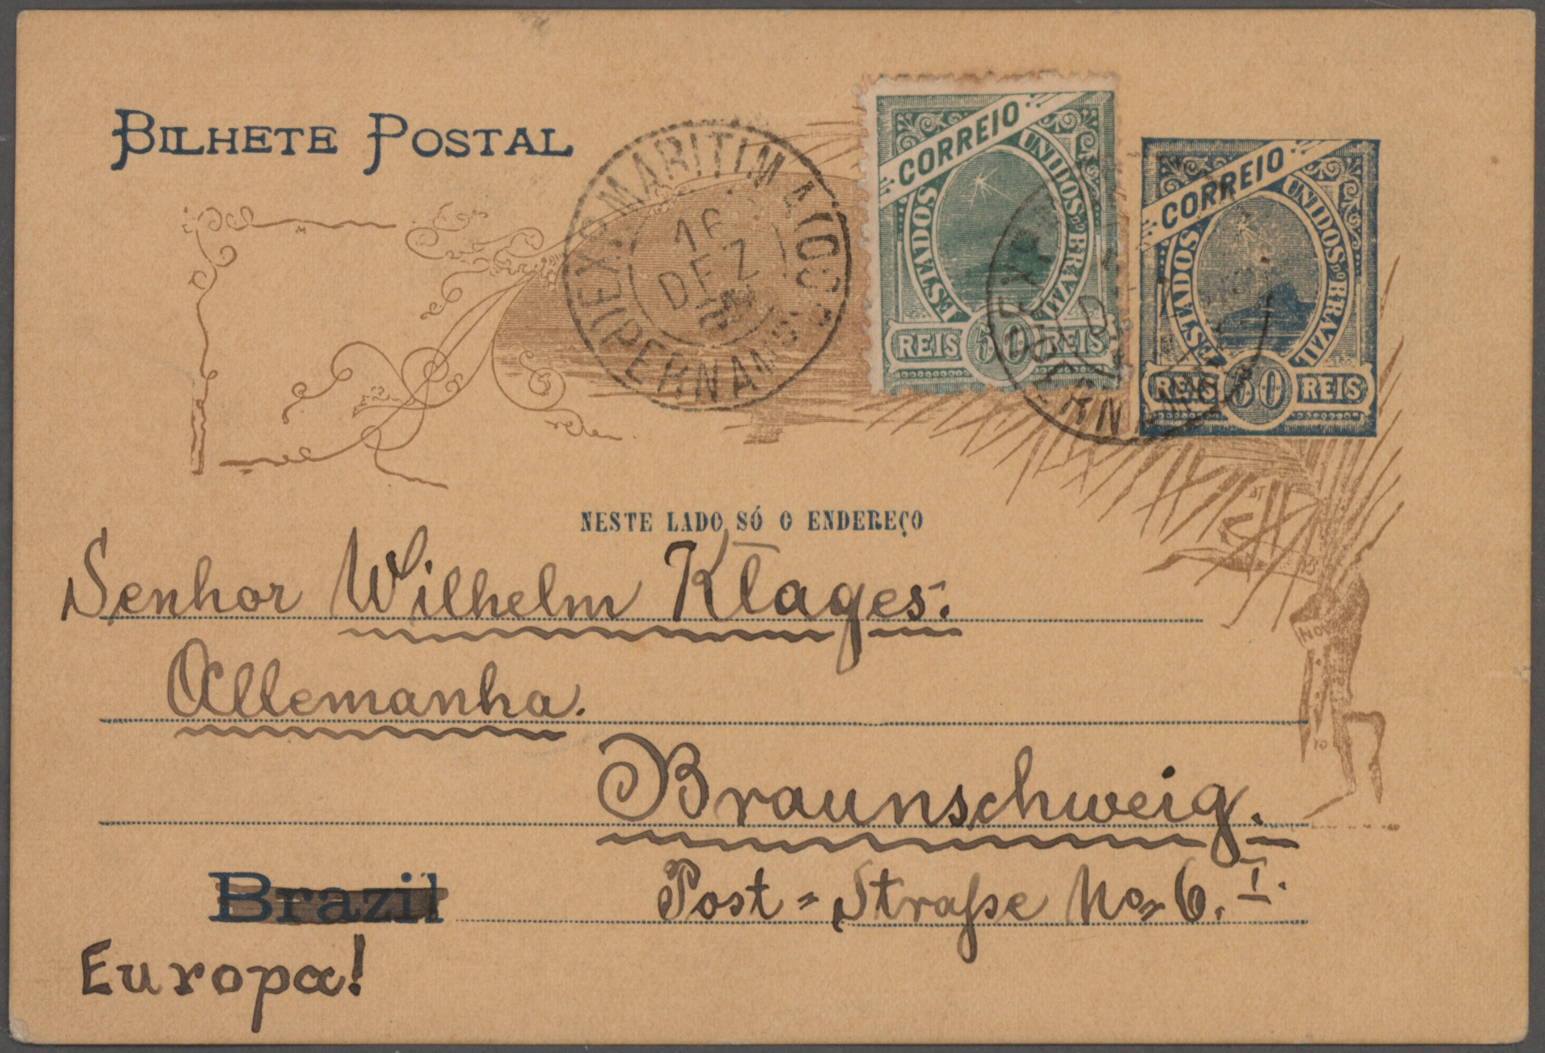 BILHETE POSTAL
16
DEZ
CORREIO
ESTADOS UNIDOS BRAZIL
REIS 50 REIS
CORREIO
ESTADOS UNIDOS BRAZIL
REIS 50 REIS
NESTE LADO SÓ O ENDEREÇO
Senhor Wilhelm Klages.
Allemanha.
Braunschweig.
Brazil
Post-Straße No 6. I.
Europa!